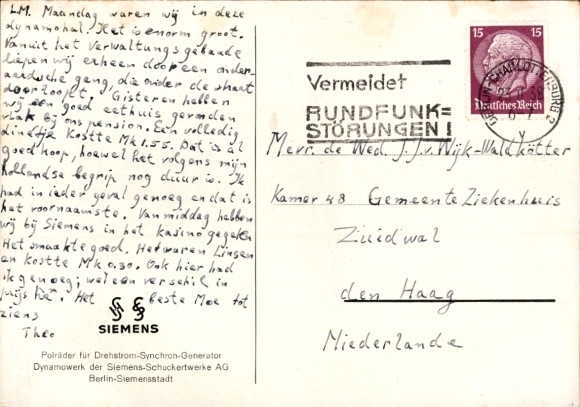 L.M. Maandag waren wij in deze
dynamohal. Het is enorm groot.
Vanuit het Verwaltungsgebäude
liepen wij erheen door een onder-
aardsche gang, die onder de straat
doorloopt. Gisteren hebben
wij een goed eethuis gevonden
vlak bij ons pension. Een volledig
dinétje kostte Mk 1.55. Dat is al
goedkoop, hoewel het volgens mijn
hollandse begrip nog duur is. Ik
had in ieder geval genoeg en dat is
het voornaamste. Van middag hebben
wij bij Siemens in het kasino gegeten
Het smaakte goed. Het waren Linsen
en kostte Mk 0.30. Ook hier had
ik genoeg; wel een verschil in
prijs hè". Het beste Moe tot
ziens
Theo
SIEMENS
Polräder für Drehstrom-Synchron-Generator
Dynamowerk der Siemens-Schuckertwerke AG
Berlin-Siemensstadt
Vermeidet
RUNDFUNK=
STÖRUNGEN!
15 15
Deutsches Reich
BERLIN-CHARLOTTENBURG 2
Mevr. de Wed. J.J. v. Wijk-Waldkötter
Kamer 48 Gemeente Ziekenhuis
Zuidwal
den Haag
Niederlande